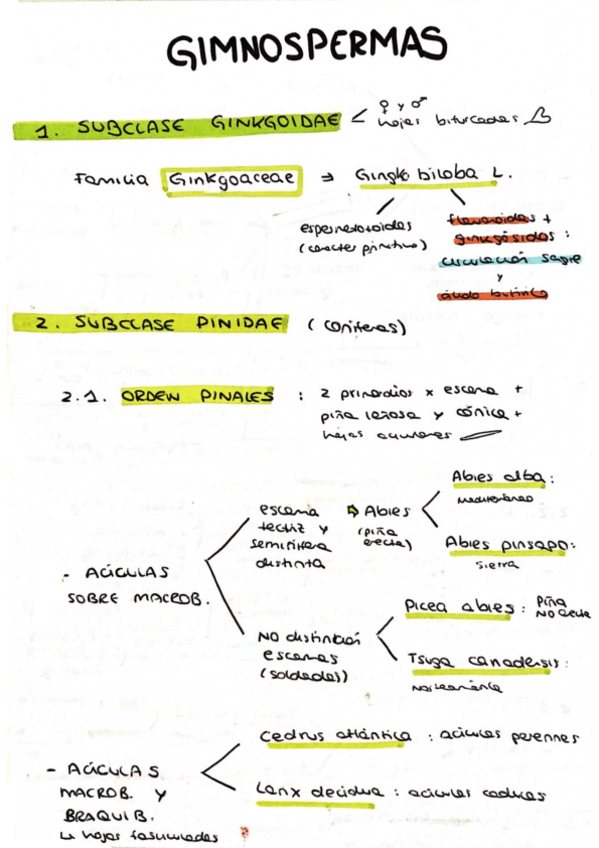 GIMNOSPERMAS
1. SUBCLASE GINKGOIDAE < ♀ y ♂
hojas bifurcadas
Familia Ginkgoaceae ⇒ Gingko biloba L.
espermatozoides
(caracter primitivo)
flavonoides +
ginkgósidos :
circulación sangre
y
ácido butírico
2. SUBCLASE PINIDAE (coníferas)
2.1. ORDEN PINALES : 2 primordios x escama +
piña leñosa y cónica +
hojas aciculares
- ACÍCULAS
SOBRE MACROB.
escama
tectriz y
seminífera
distinta
⇒ Abies
(piña
erecta)
Abies alba :
mediterráneo
Abies pinsapo :
sierra
NO distinción
escamas
(soldadas)
Picea abies : Piña
NO erecta
Tsuga canadensis :
norteamérica
- ACÍCULAS
MACROB. Y
BRAQUIB.
↳ hojas fasciculadas ?
Cedrus atlántica : acículas perennes
Larix decidua : acículas caducas